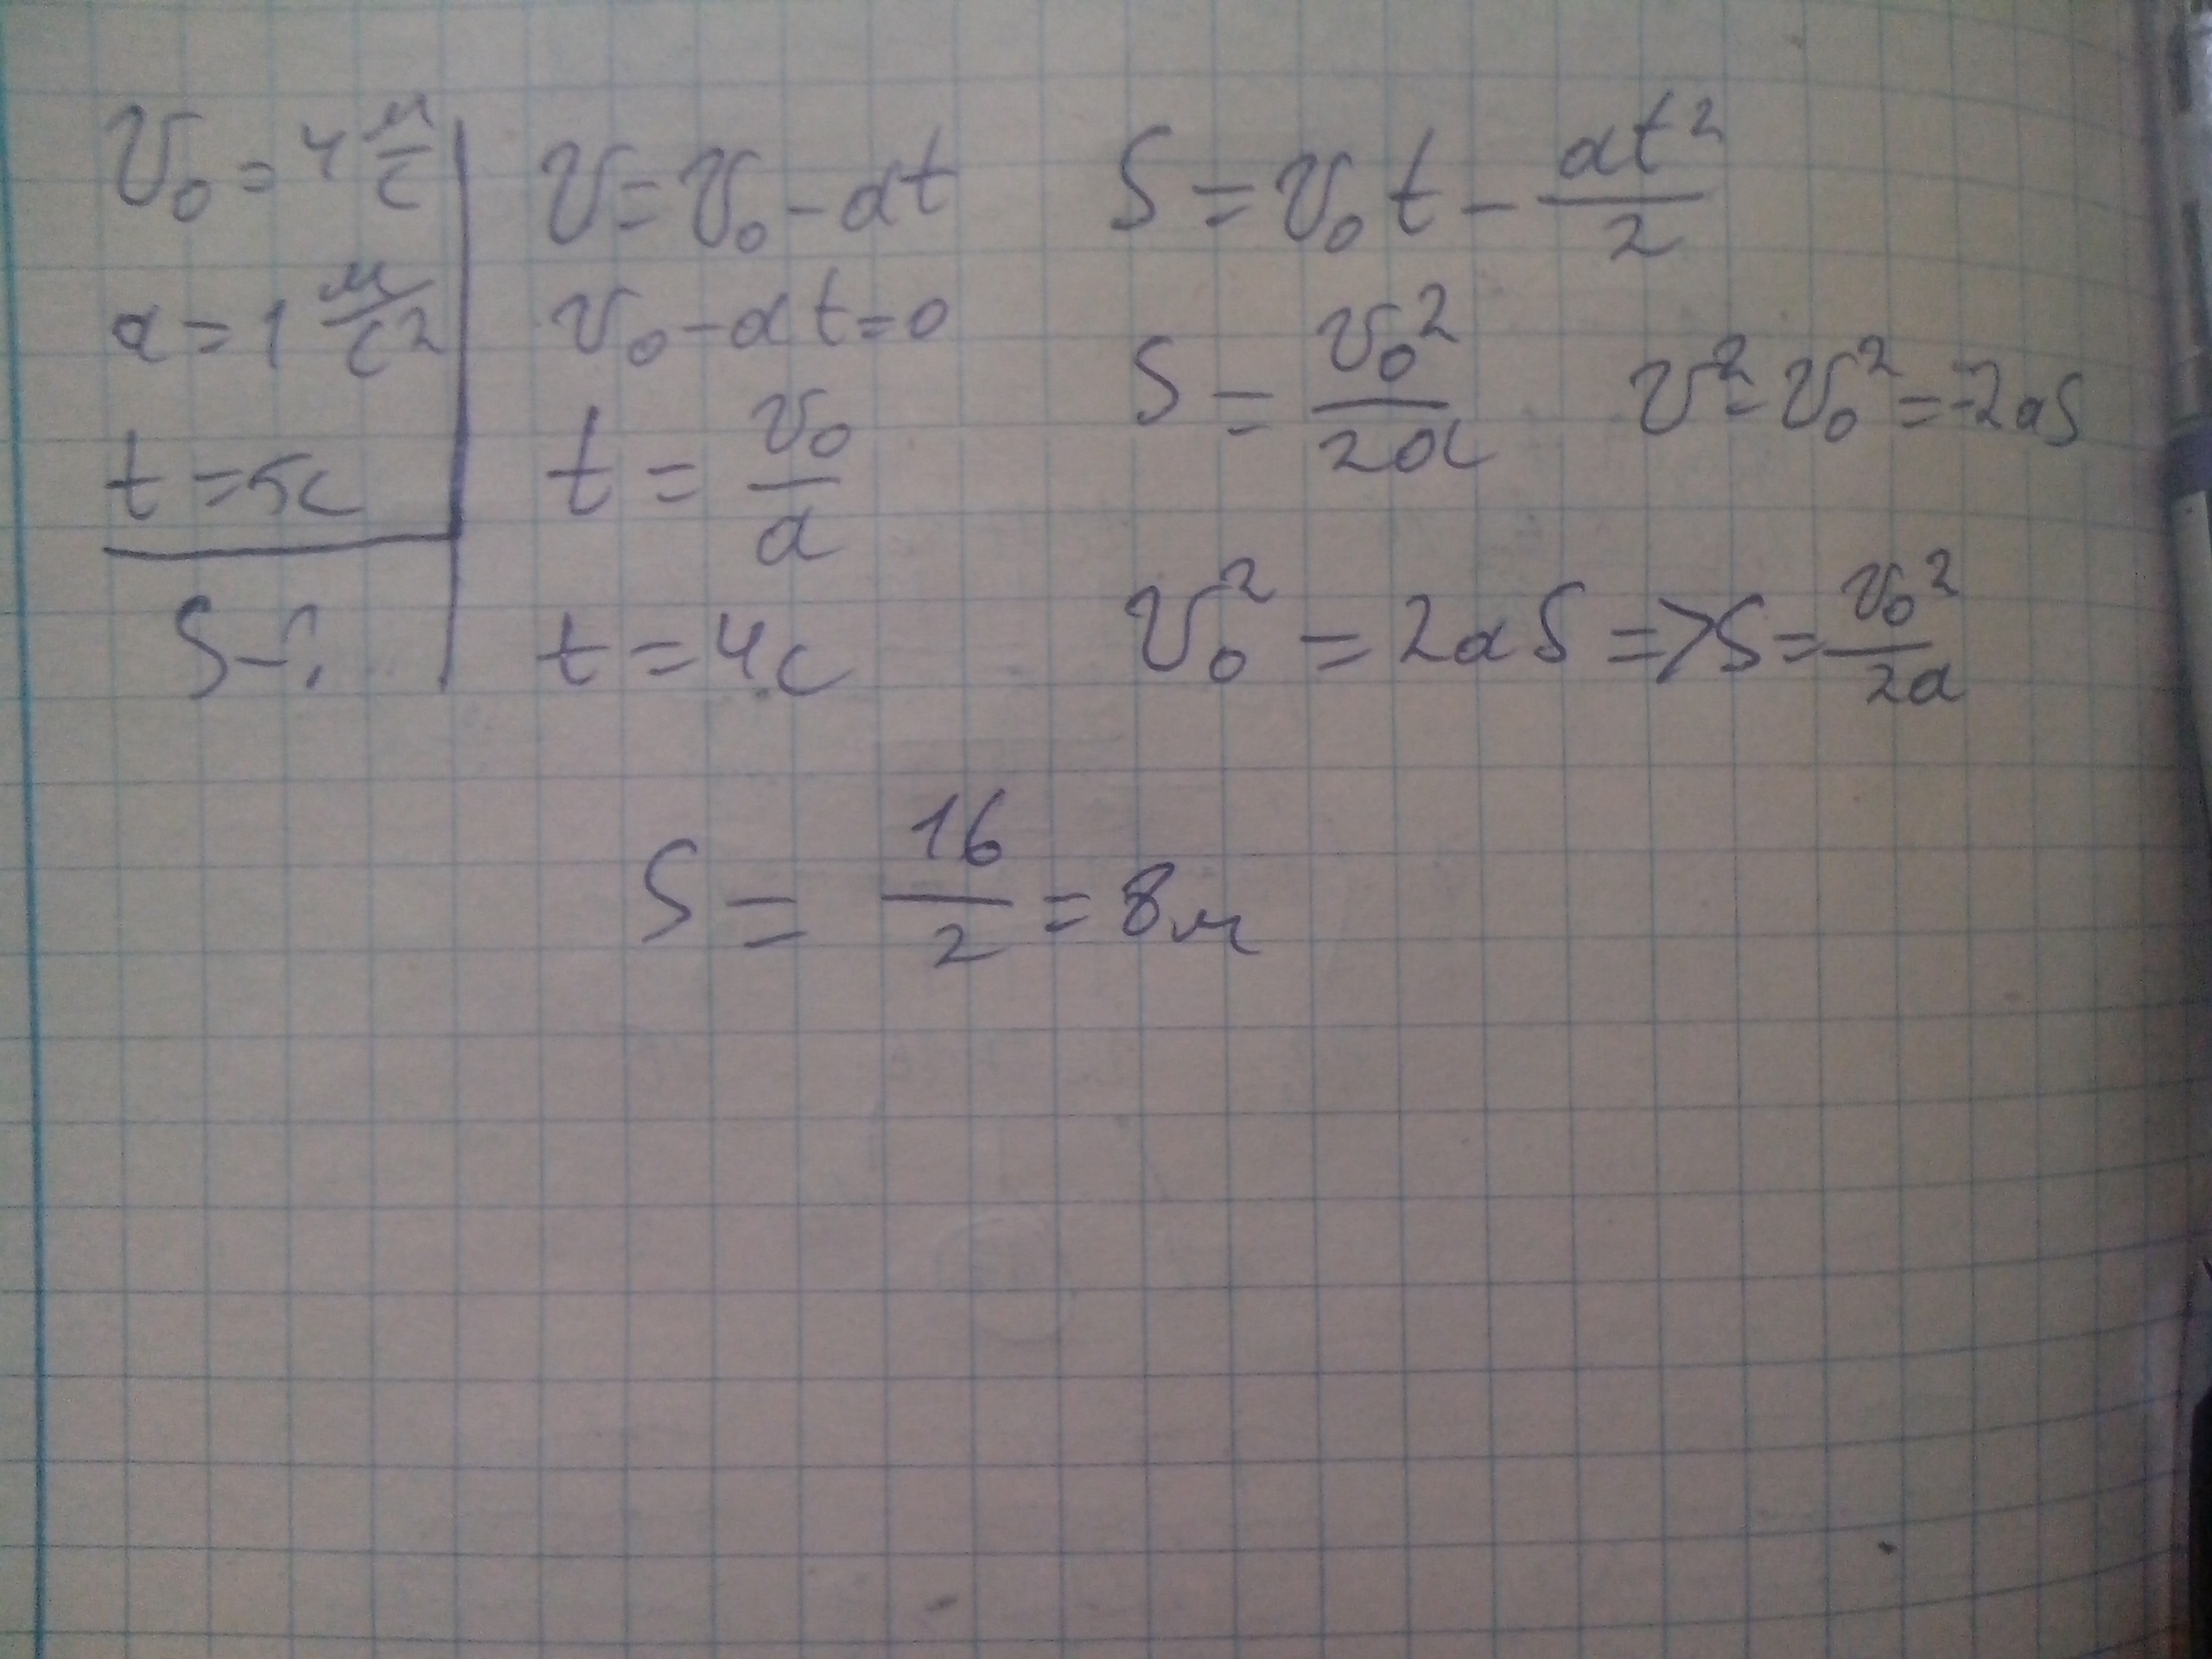 v₀ = 4 м/с
a = 1 м/с²
t = 5с
S - ?
v = v₀ - at
v₀ - at = 0
t = v₀/a
t = 4с
S = v₀t - at²/2
S = v₀²/2a v² - v₀² = -2aS
v₀² = 2aS => S = v₀²/2a
S = 16/2 = 8м